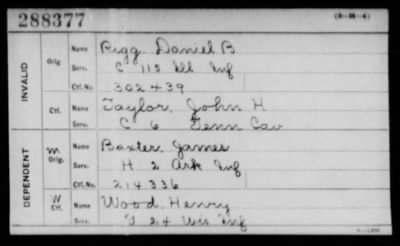 288377
(3-98-4)
INVALID
Orig
Name Rigg. Daniel B
Serv. C 115 Ill Inf
Ctf. No. 302439
Ctf.
Name Taylor, John H
Serv. C 6 Tenn Cav
DEPENDENT
M
Orig.
Name Baxter, James
Serv. H 2 Ark Inf
Ctf. No. 214336
W
Ctf.
Name Wood, Henry
Serv. 24 Wis Inf